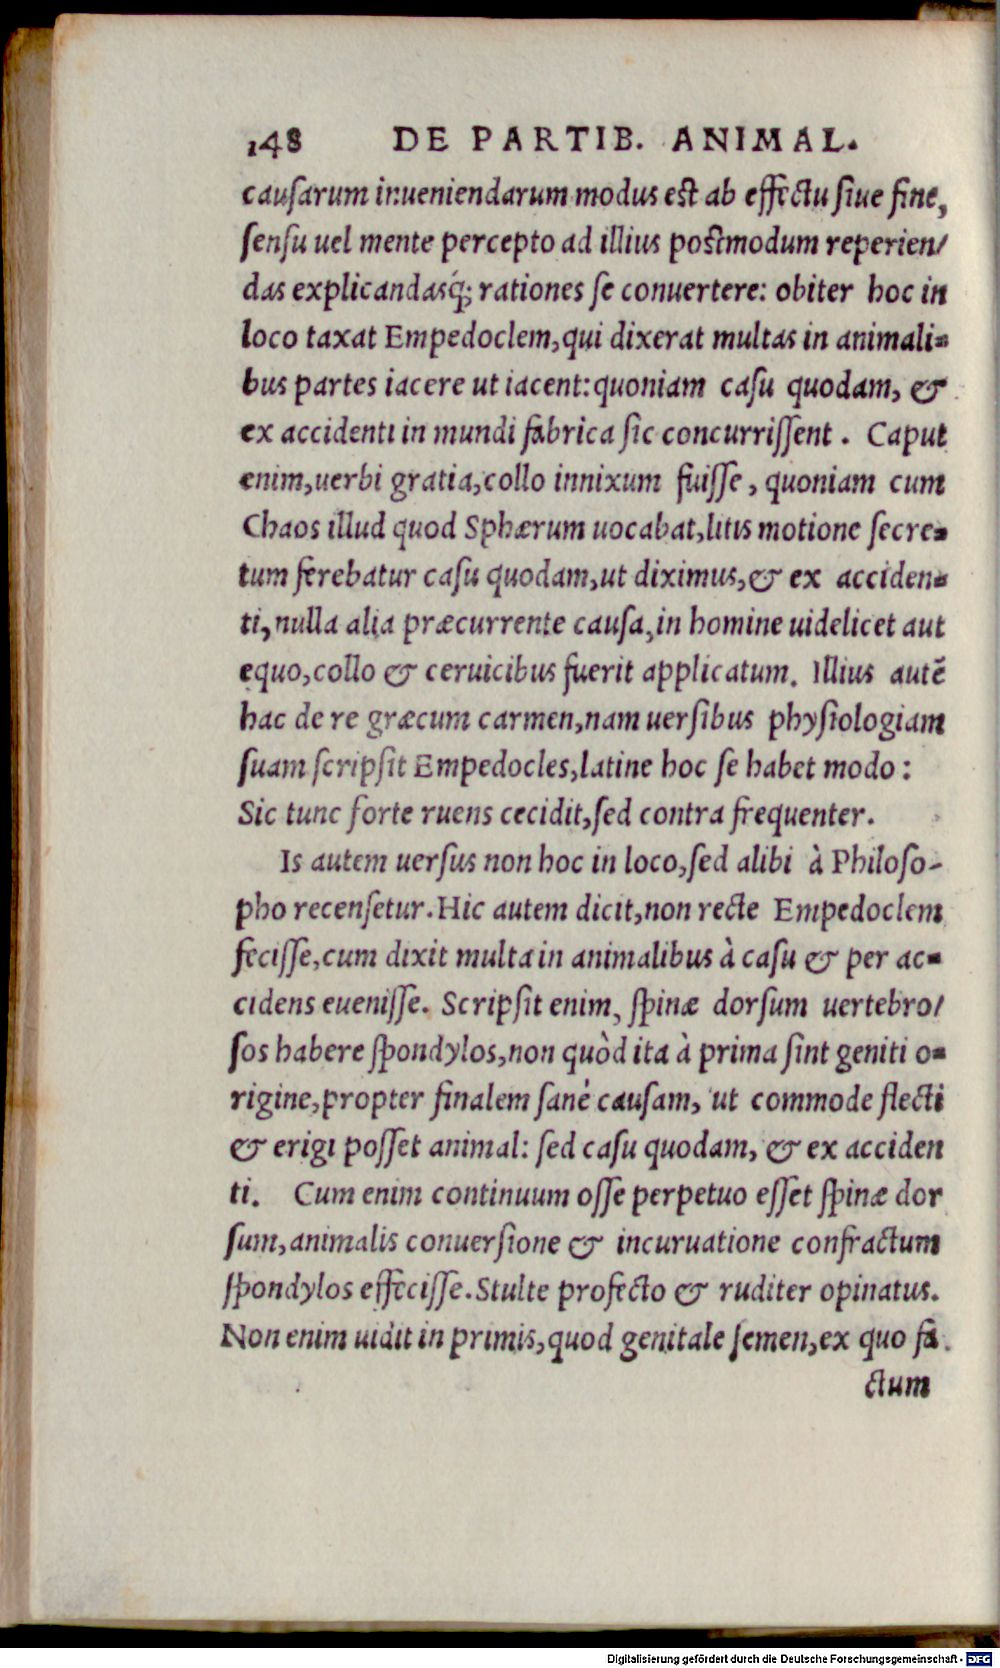 148 DE PARTIB. ANIMAL.
cauſarum inueniendarum modus est ab effectu ſiue fine,
ſenſu uel mente percepto ad illius postmodum reperien/
das explicandasq́; rationes ſe conuertere: obiter hoc in
loco taxat Empedoclem, qui dixerat multas in animali=
bus partes iacere ut iacent: quoniam caſu quodam, &
ex accidenti in mundi fabrica ſic concurriſſent. Caput
enim, uerbi gratia, collo innixum fuiſſe, quoniam cum
Chaos illud quod Sphærum uocabat, litis motione ſecre=
tum ferebatur caſu quodam, ut diximus, & ex acciden=
ti, nulla alia præcurrente cauſa, in homine uidelicet aut
equo, collo & ceruicibus fuerit applicatum. Illius autẽ
hac de re græcum carmen, nam uerſibus phyſiologiam
ſuam ſcripſit Empedocles, latine hoc ſe habet modo:
Sic tunc forte ruens cecidit, ſed contra frequenter.
Is autem uerſus non hoc in loco, ſed alibi à Philoſo-
pho recenſetur. Hic autem dicit, non recte Empedoclem
feciſſe, cum dixit multa in animalibus à caſu & per ac=
cidens eueniſſe. Scripſit enim, ſpinæ dorſum uertebro/
ſos habere ſpondylos, non quòd ita à prima ſint geniti o=
rigine, propter finalem sanè cauſam, ut commode flecti
& erigi poſſet animal: ſed caſu quodam, & ex acciden
ti. Cum enim continuum oſſe perpetuo eſſet ſpinæ dor
ſum, animalis conuerſione & incuruatione confractum
ſpondylos effeciſſe. Stulte profecto & ruditer opinatus.
Non enim uidit in primis, quod genitale ſemen, ex quo fa
ctum
Digitalisierung gefördert durch die Deutsche Forschungsgemeinschaft - DFG